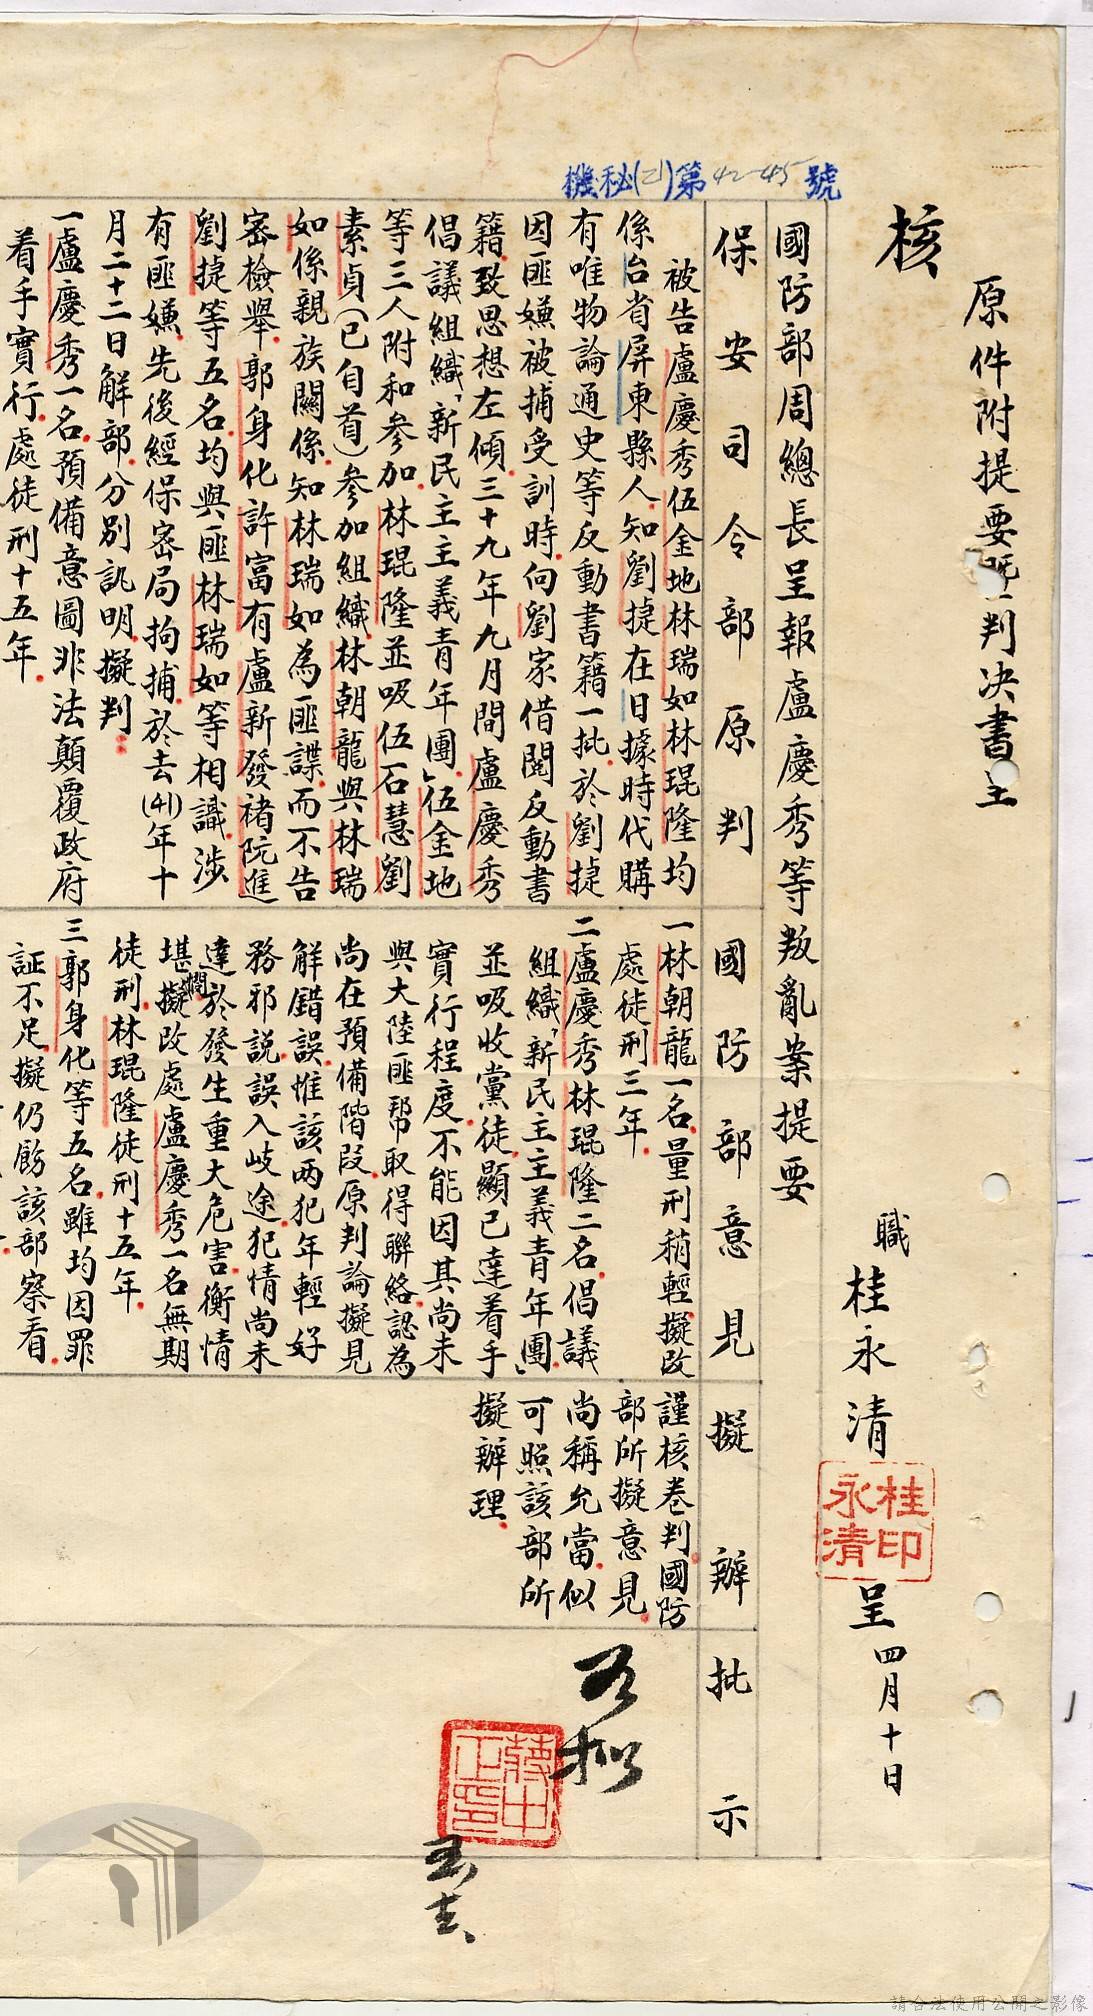 機秘(乙)第42-45號
原件附提要暨判決書呈
核
職桂永清呈四月十日
桂永清印
國防部周總長呈報盧慶秀等叛亂案提要
保安司令部原判
被告盧慶秀伍金地林瑞如林琨隆均
係台省屏東縣人知劉捷在日據時代購
有唯物論通史等反動書籍一批於劉捷
因匪嫌被捕受訓時向劉家借閱反動書
籍致思想左傾三十九年九月間盧慶秀
倡議組織「新民主主義青年團」伍金地
等三人附和參加林琨隆並吸伍石慧劉
素貞(已自首)參加組織林朝龍與林瑞
如係親族關係知林瑞如為匪諜而不告
密檢舉郭身化許富有盧新發褚阮進
劉捷等五名均與匪林瑞如等相識涉
有匪嫌先後經保密局拘捕於去(41)年十
月二十二日解部分別訊明擬判:
一盧慶秀一名預備意圖非法顛覆政府
着手實行處徒刑十五年
國防部意見
一林朝龍一名量刑稍輕擬改
處徒刑三年
二盧慶秀林琨隆二名倡議
組織「新民主主義青年團」
並吸收黨徒顯已達着手
實行程度不能因其尚未
與大陸匪幫取得聯絡認為
尚在預備階段原判論擬見
解錯誤惟該兩犯年輕好
務邪說誤入歧途犯情尚未
達於發生重大危害衡情
堪憫擬改處盧慶秀一名無期
徒刑林琨隆徒刑十五年
三郭身化等五名雖均因罪
証不足擬仍飭該部察看
擬辦
謹核卷判國防
部所擬意見
尚稱允當似
可照該部所
擬辦理
批示
如擬
蔣中正印
請合法使用公開之影像